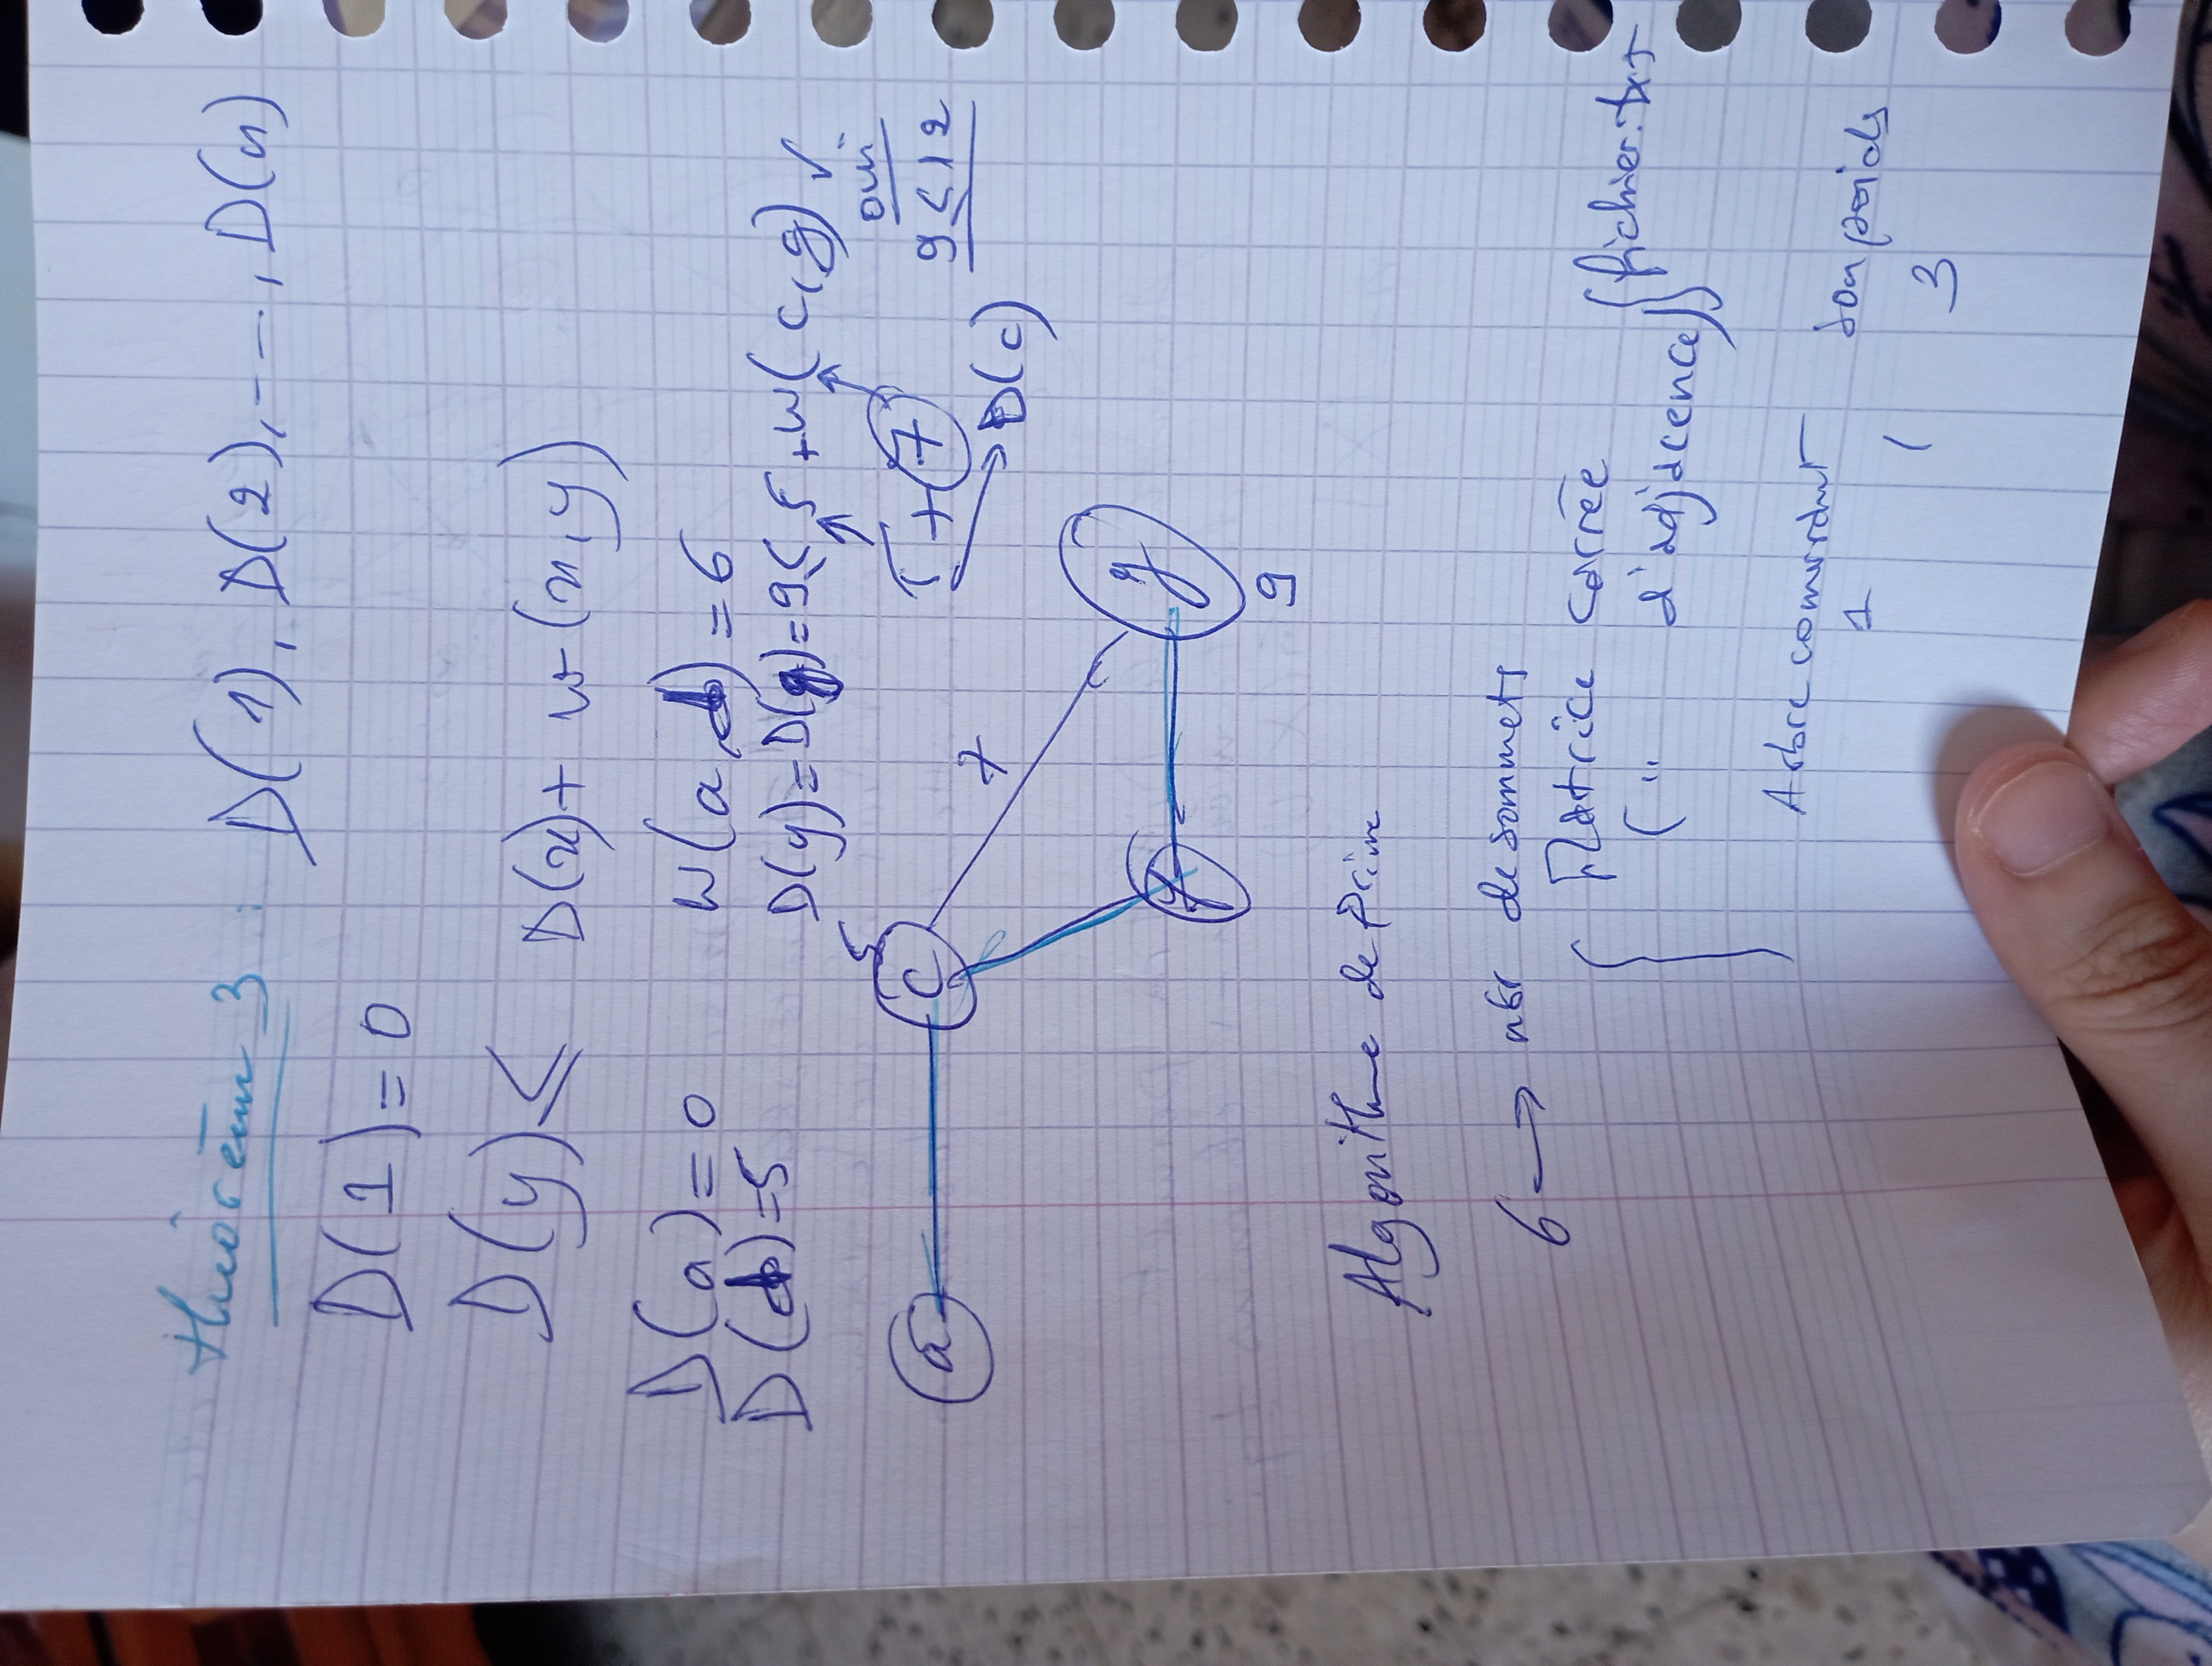 théorème 3 : D(1), D(2), ---, D(n)
D(1) = 0
D(y) ≤ D(x) + w(x,y)
D(a) = 0 W(a,d) = 6
D(d) = 5 D(y) = D(g) = 9 ≤ 5 + W(c,g) ✓
oui
5 + 7 9 ≤ 12
D(c)
5
a c
7
f g
9
Algorithme de Prim
6 → nbr de sommets
Matrice carrée
( " d'adjacence) fichier.txt
Arbre couvrant son poids
1 3